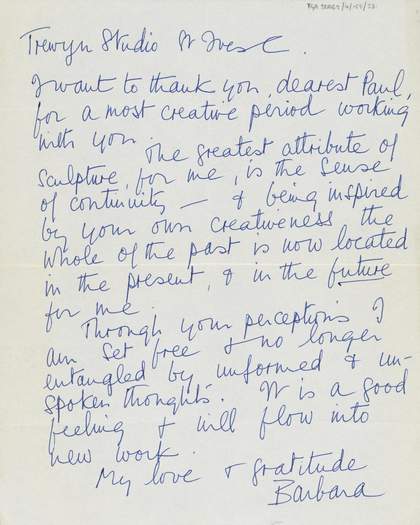 Trewyn Studio St Ives C.
I want to thank you, dearest Paul,
for a most creative period working
with you.
The greatest attribute of
sculpture, for me, is the sense
of continuity – & being inspired
by your own creativeness the
whole of the past is now located
in the present, & in the future
for me.
Through your perceptions I
am set free & no longer
entangled by unformed & un-
spoken thoughts. It is a good
feeling & will flow into
new work.
My love & gratitude
Barbara